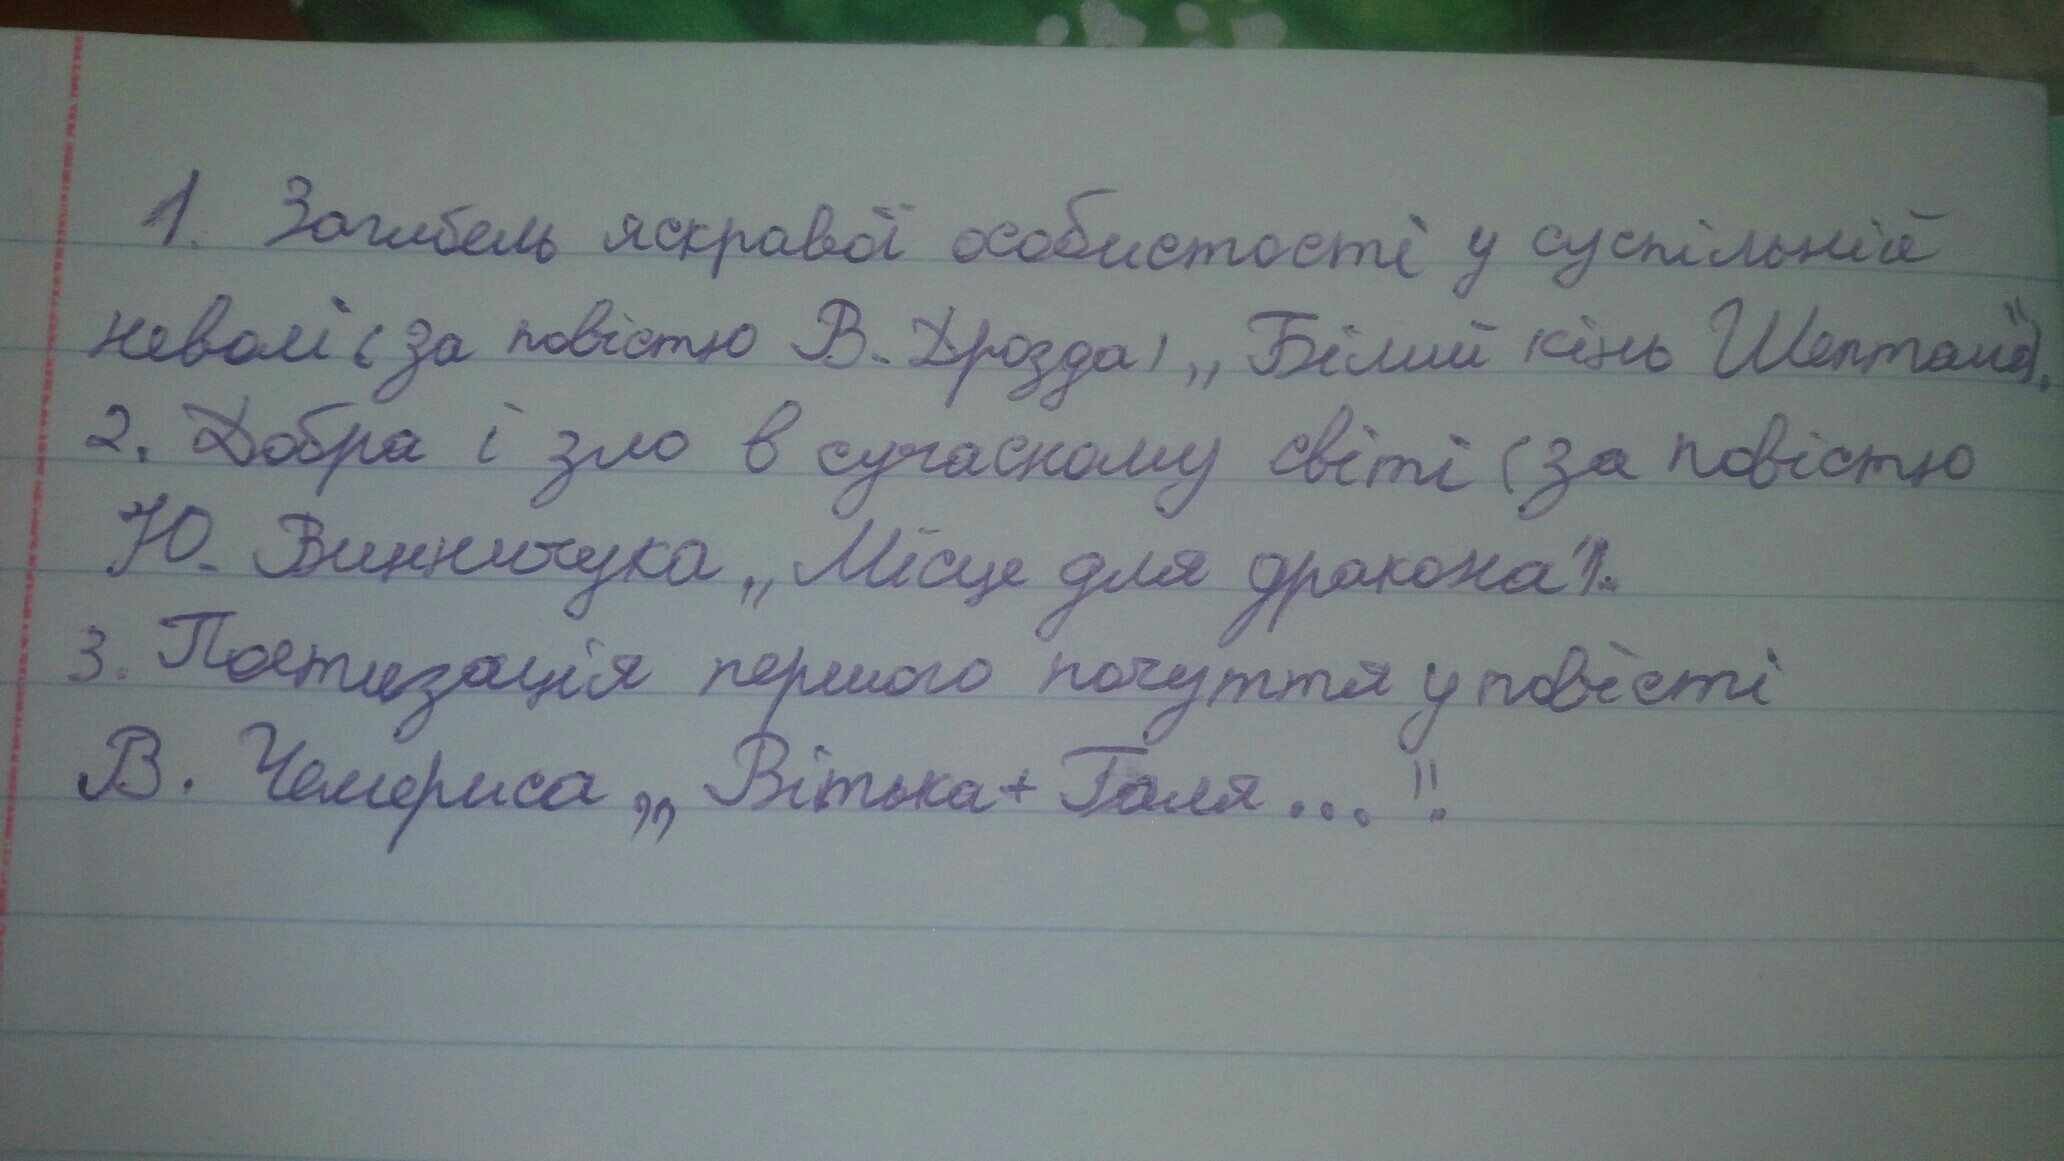 1. Загибель яскравої особистості у суспільній
неволі (за повістю В. Дрозда, „Білий кінь Шептало").
2. Добра і зло в сучасному світі (за повістю
Ю. Винничука „Місце для дракона").
3. Поетизація першого почуття у повісті
В. Чемериса „Вітька + Галя...".